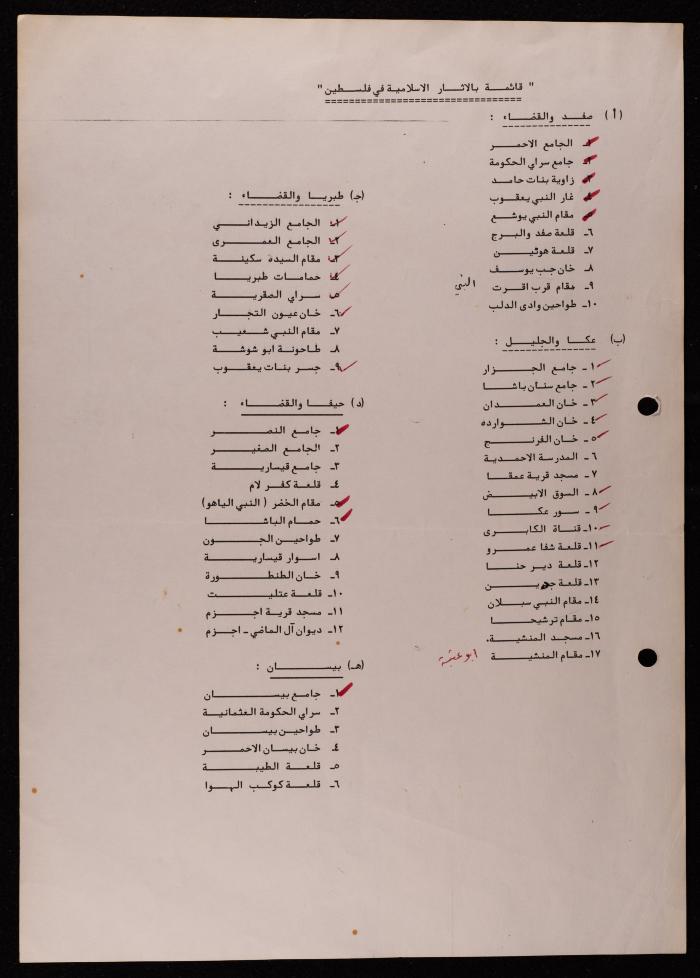 " قائمة بالاثار الاسلامية في فلسطين "
(أ) صفد والقضاء :
١ـ الجامع الاحمر
٢ـ جامع سراي الحكومة
٣ـ زاوية بنات حامد
٤ـ غار النبي يعقوب
٥ـ مقام النبي يوشع
٦ـ قلعة صفد والبرج
٧ـ قلعة هونين
٨ـ خان جب يوسف
٩ـ مقام قرب اقرت النبي
١٠ـ طواحين وادى الدلب
(ب) عكا والجليل :
١ـ جامع الجزار
٢ـ جامع سنان باشا
٣ـ خان العمدان
٤ـ خان الشوارده
٥ـ خان الفرنج
٦ـ المدرسة الاحمدية
٧ـ مسجد قرية عمقا
٨ـ السوق الابيض
٩ـ سور عكا
١٠ـ قناة الكابرى
١١ـ قلعة شفا عمرو
١٢ـ قلعة دير حنا
١٣ـ قلعة جدين
١٤ـ مقام النبي سبلان
١٥ـ مقام ترشيحا
١٦ـ مسجد المنشية.
١٧ـ مقام المنشية ابو عتبة
(جـ) طبريا والقضاء :
١ـ الجامع الزيداني
٢ـ الجامع العمرى
٣ـ مقام السيده سكينة
٤ـ حمامات طبريا
٥ـ سراي الصقرية
٦ـ خان عيون التجار
٧ـ مقام النبي شعيب
٨ـ طاحونة ابو شوشة
٩ـ جسر بنات يعقوب
(د) حيفا والقضاء :
١ـ جامع النصر
٢ـ الجامع الصغير
٣ـ جامع قيسارية
٤ـ قلعة كفر لام
٥ـ مقام الخضر ( النبي الياهو)
٦ـ حمام الباشا
٧ـ طواحين الجون
٨ـ اسوار قيسارية
٩ـ خان الطنطورة
١٠ـ قلعة عتليت
١١ـ مسجد قرية اجزم
١٢ـ ديوان آل الماضي ـ اجزم
(هـ) بيسان :
١ـ جامع بيسان
٢ـ سراي الحكومة العثمانية
٣ـ طواحين بيسان
٤ـ خان بيسان الاحمر
٥ـ قلعة الطيبة
٦ـ قلعة كوكب الهوا